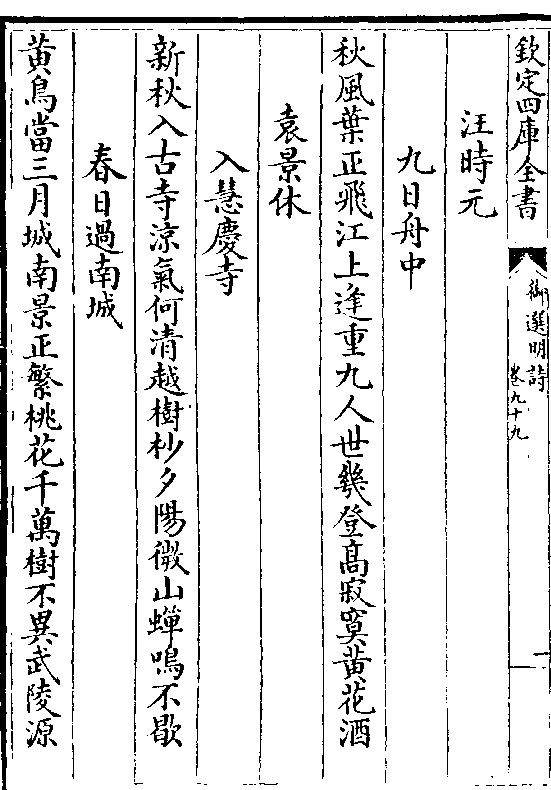 欽定四庫全書
御選明詩
卷九十九
汪時元
九日舟中
秋風葉正飛江上逢重九人世幾登高寂寞黄花酒
袁景休
入慧慶寺
新秋入古寺涼氣何清越樹杪夕陽微山蟬鳴不歇
春日過南城
黄鳥當三月城南景正繁桃花千萬樹不異武陵源